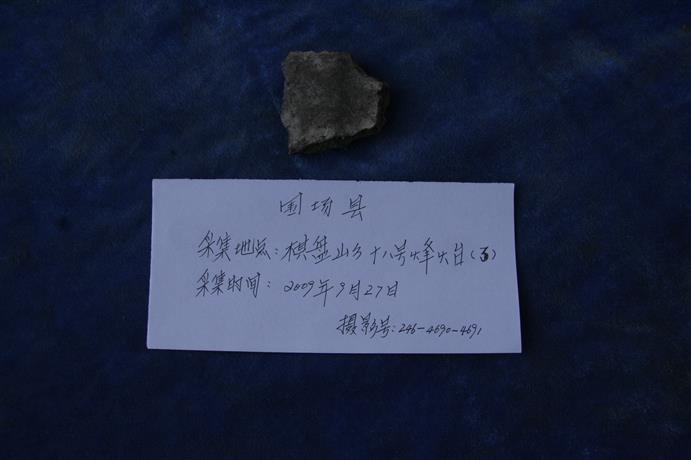 围场县
采集地点:棋盘山乡十八号烽火台(3)
采集时间:2009年9月27日
摄影号:246-4690-4691